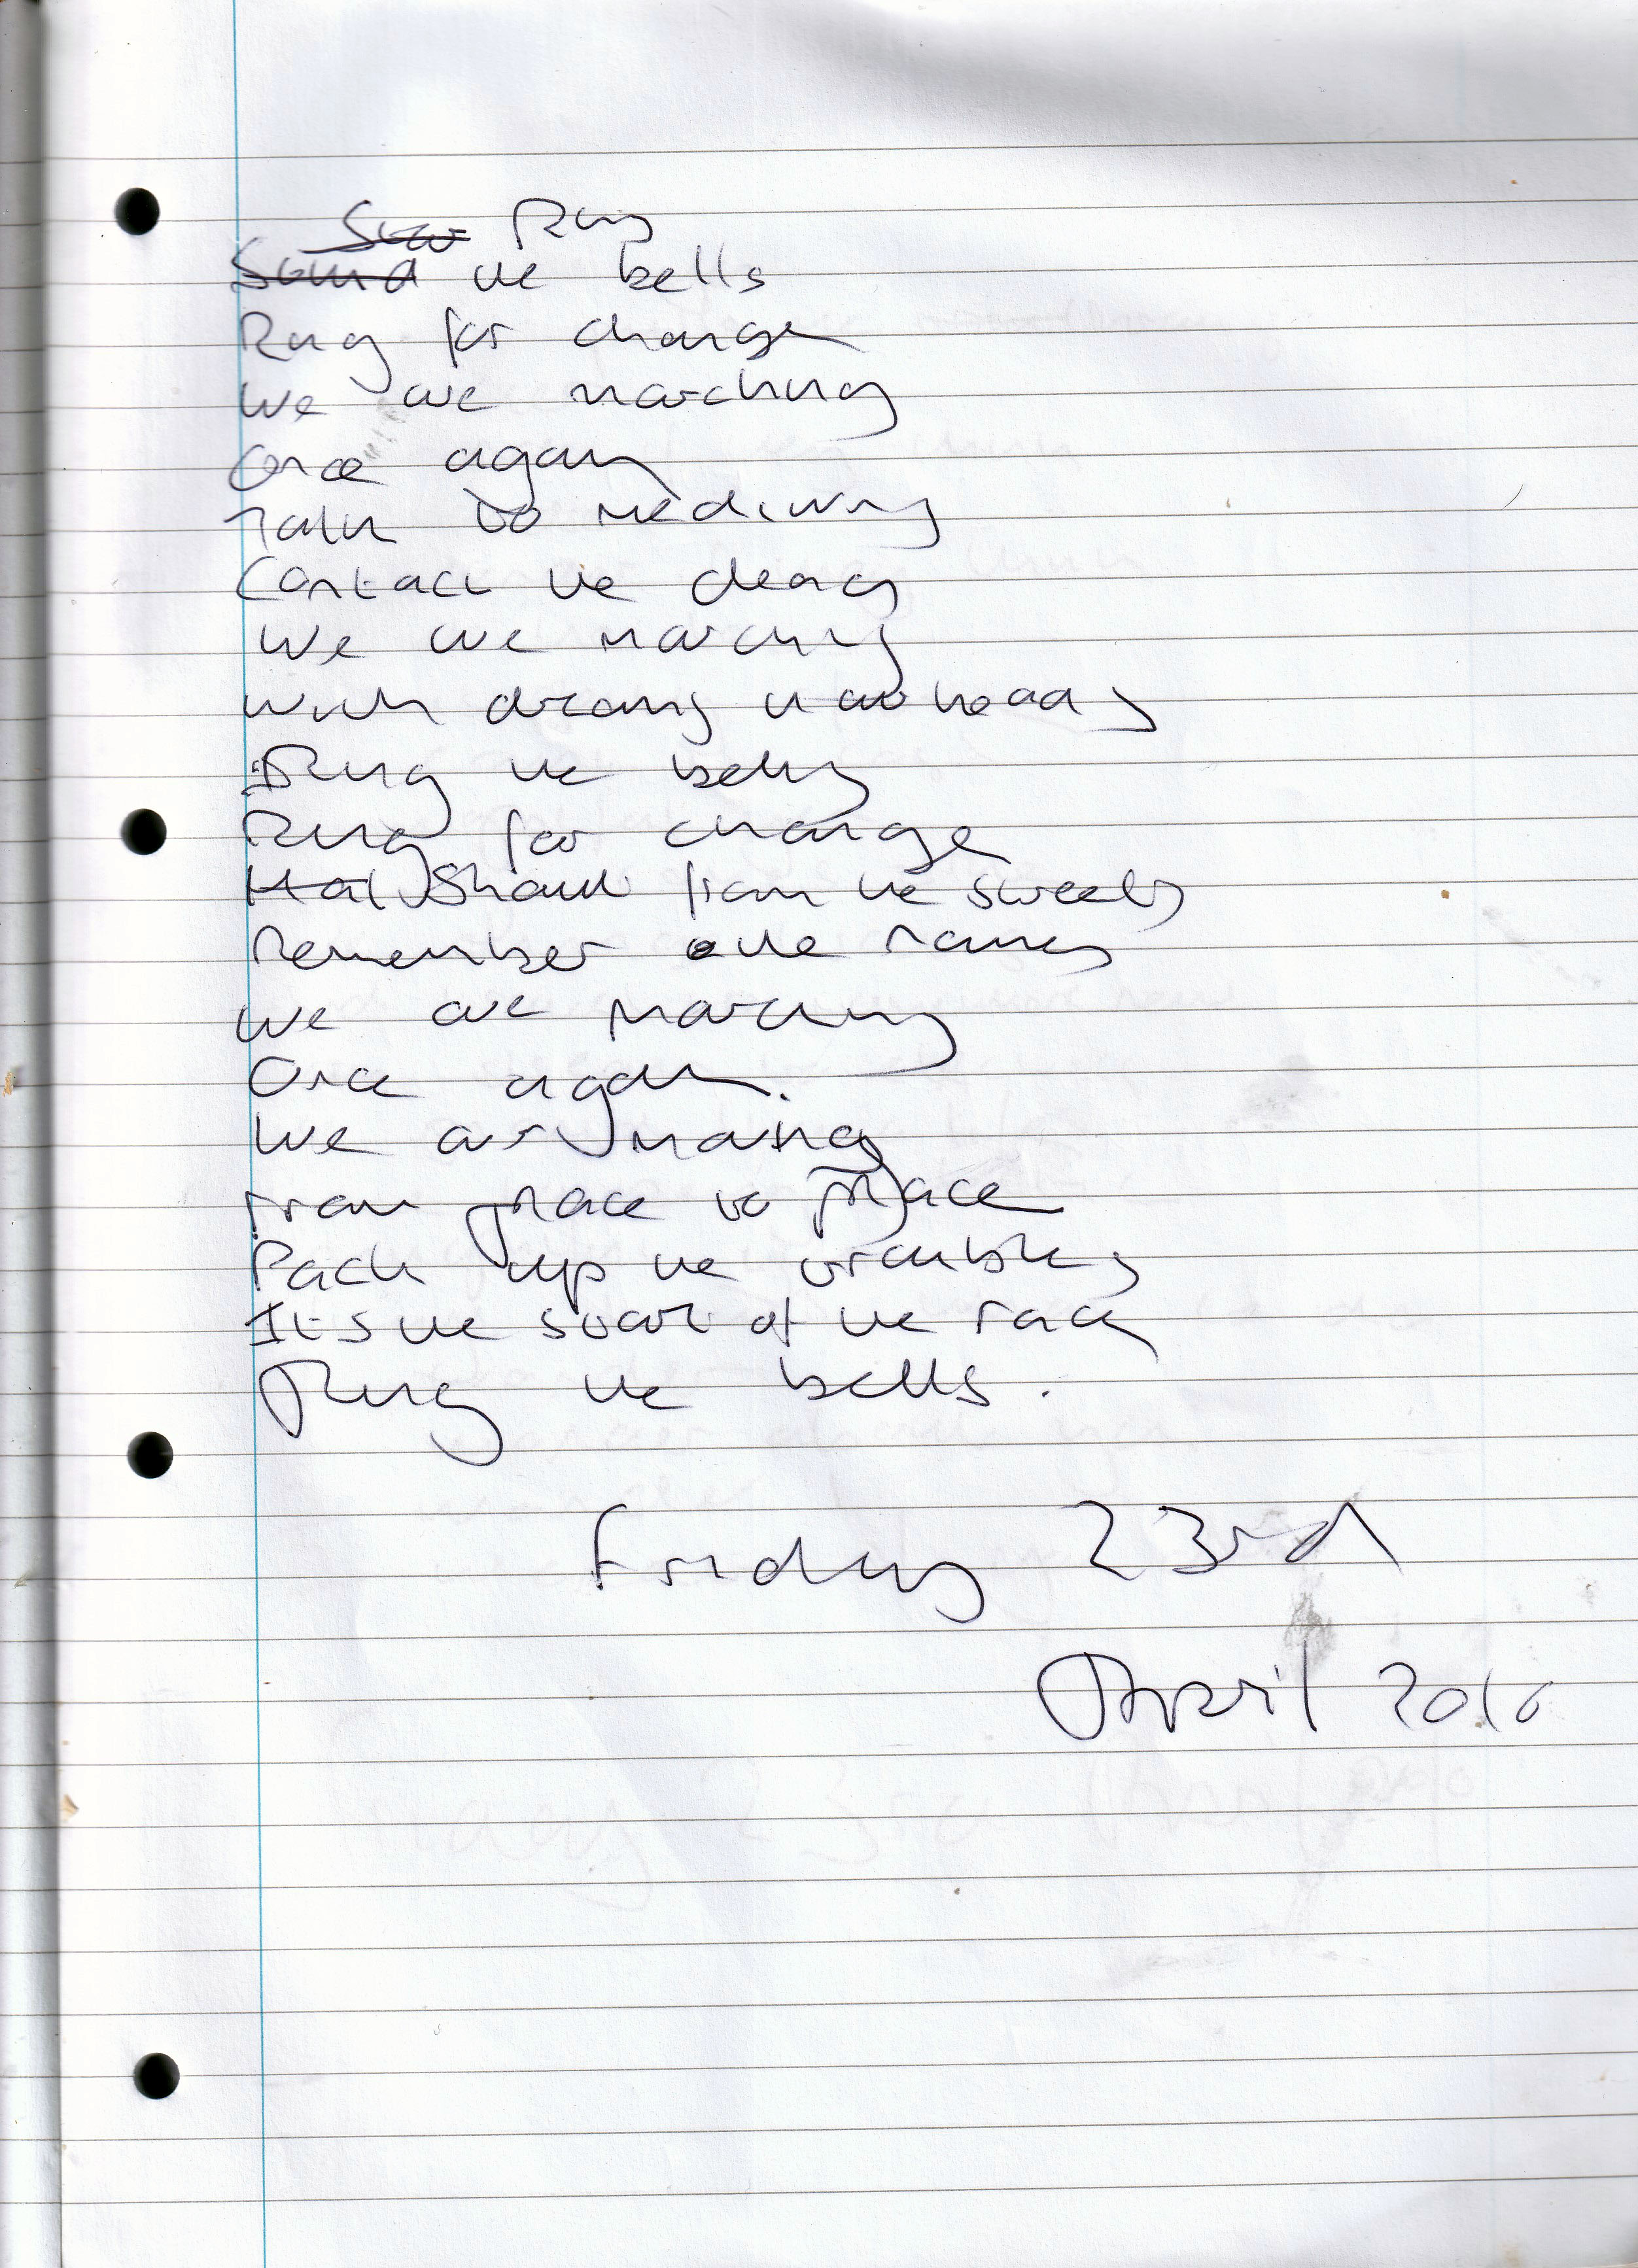 Sow Ring
Sound the bells
Ring for change
We are marching
Once again
Talk to
Contact the clergy
We are marching
With dreams in our heads
Ring the bells
Ring for change
Shout from the streets
Remember the names
We are marching
Once again.
We are moving
From place to place
Pack up the troubles
Its the start of the race
Ring the bells.
Friday 23rd
April 2010